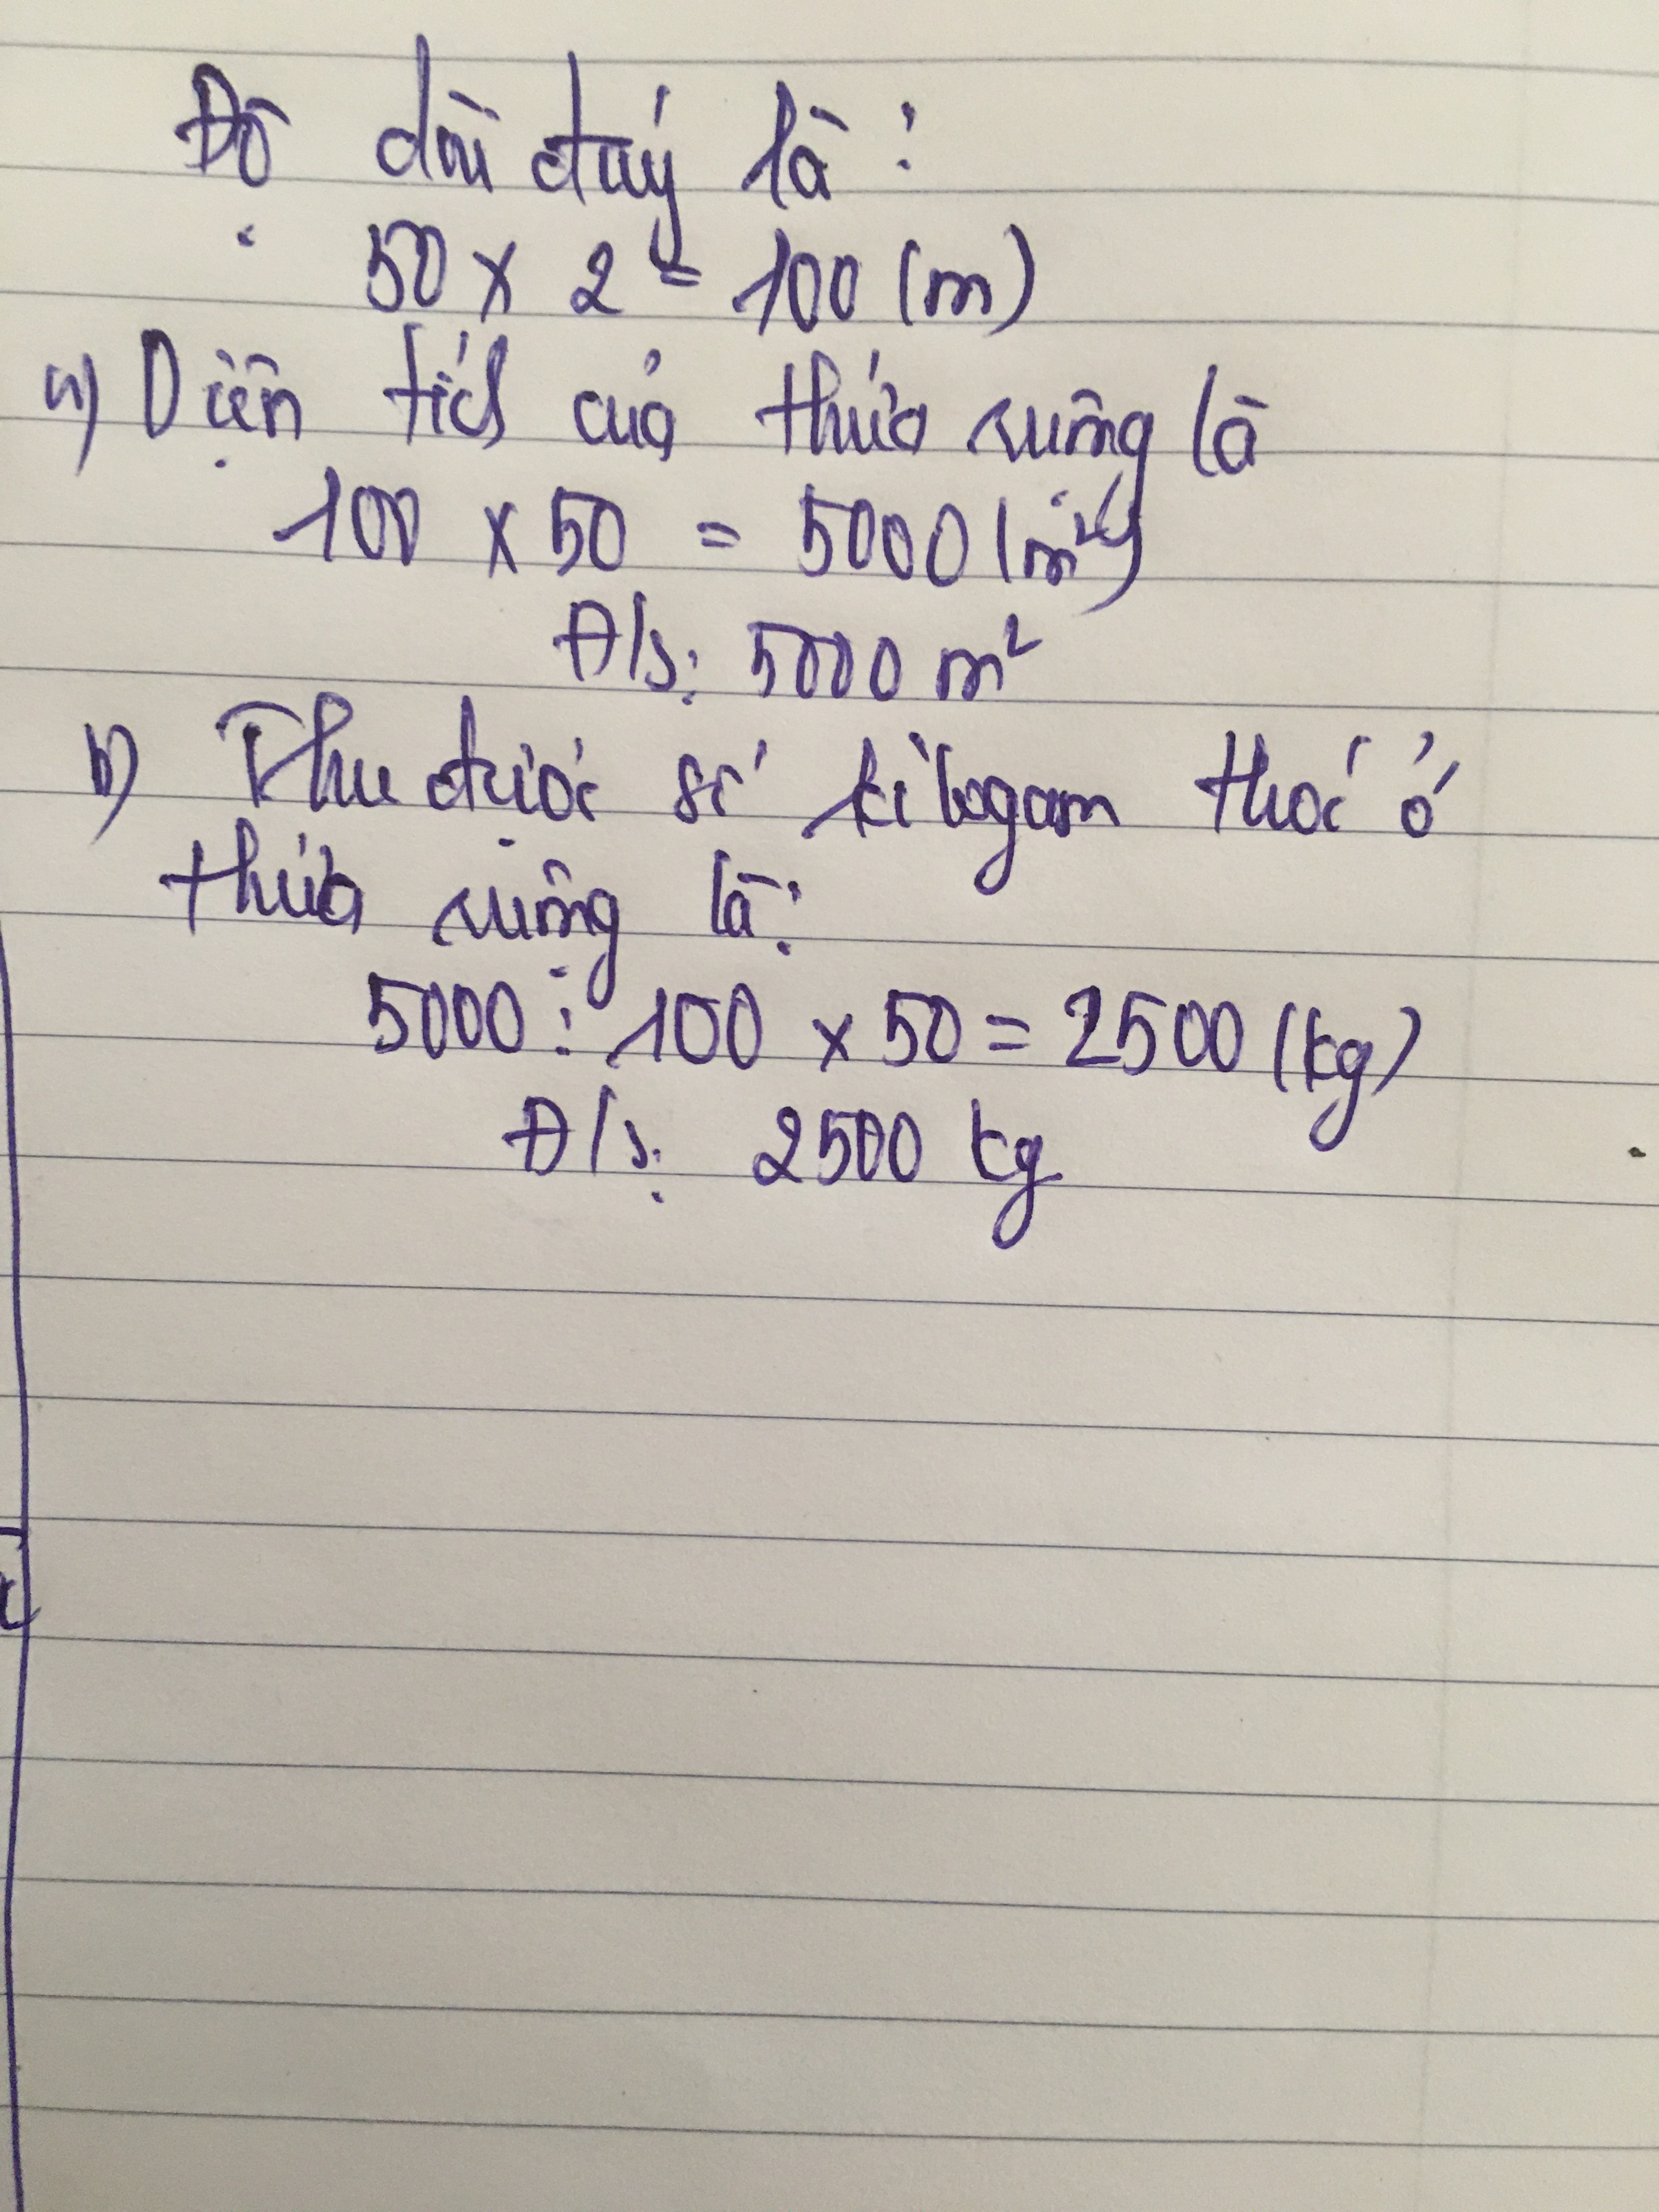 Độ dài đáy là :
50 x 2 = 100 (m)
a) Diện tích của thửa ruộng là
100 x 50 = 5000 (m²)
Đ/s: 5000 m²
b) Thu được số kilogam thóc ở
thửa ruộng là:
5000 : 100 x 50 = 2500 (kg)
Đ/s: 2500 kg